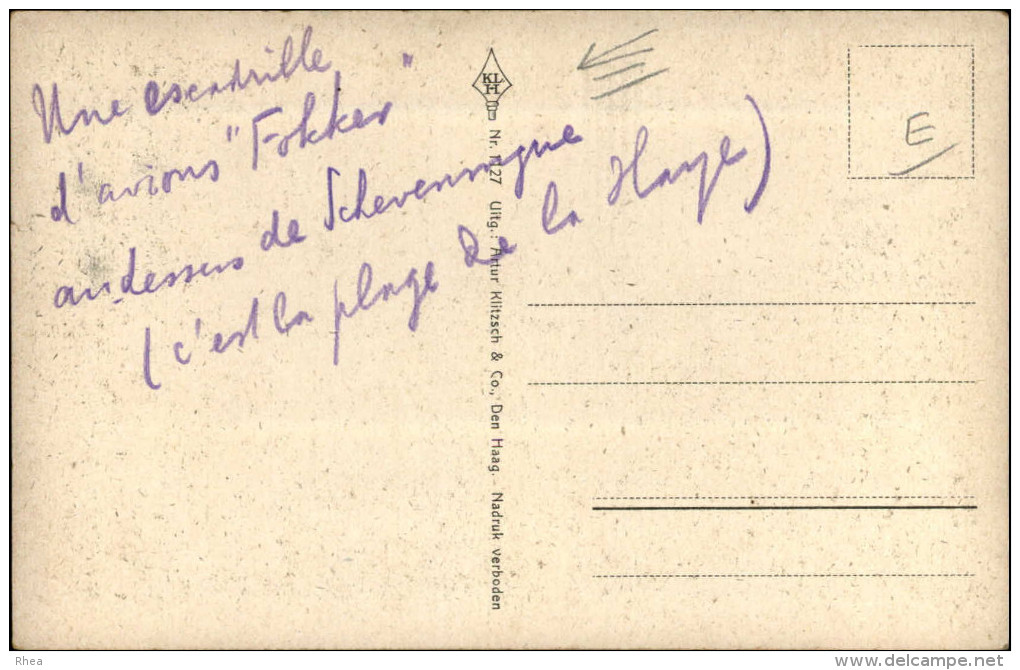 Une escadrille
d'avions "Fokker"
au dessus de Scheveningue
(c'est la plage de la Haye)
KL
H
Nr. 1127 Uitg.: Artur Klitzsch & Co., Den Haag. - Nadruk verboden
E
Rhea
www.delcampe.net